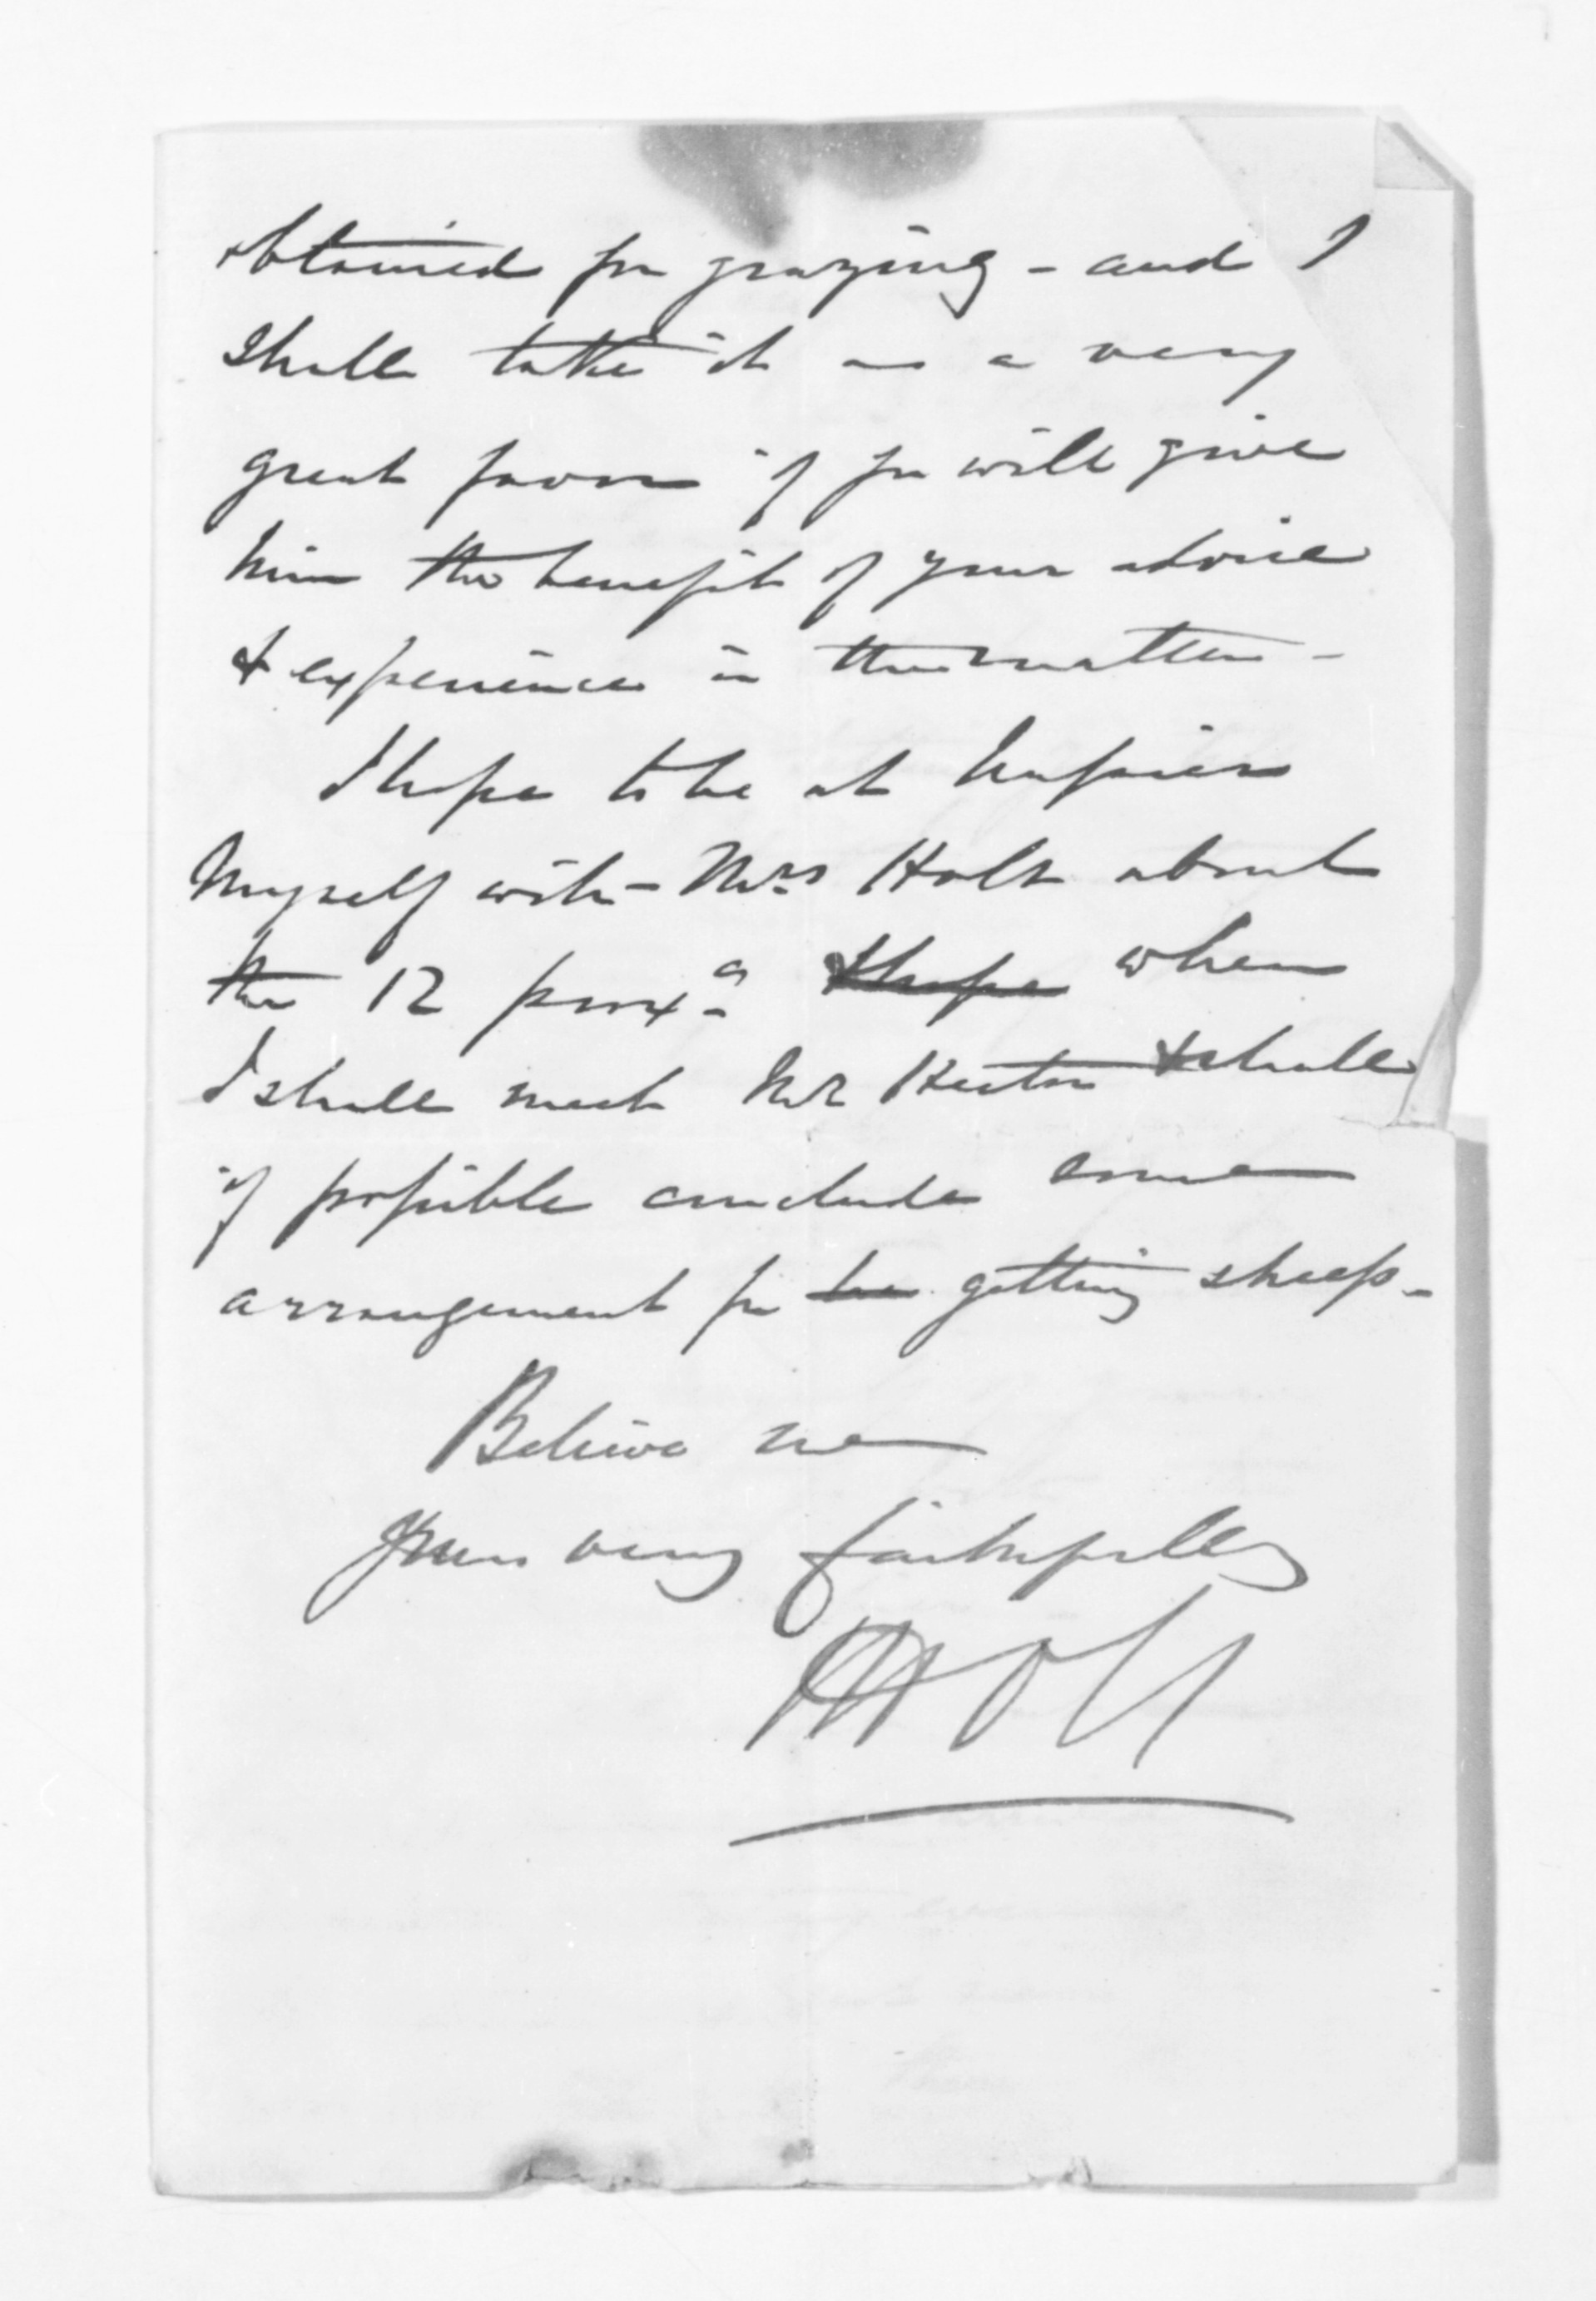 obtained for grazing - and I
shall take it as a very
great favor if you will give
him the benefit of your advice
& experience in this matter -
I hope to be at Napier
myself with Mrs Holt about
the 12 proxo. I hope when
I shall meet Mr & shall
if possible conclude some
arrangement for be getting sheep -
Believe me
Yours very faithfully
Holt